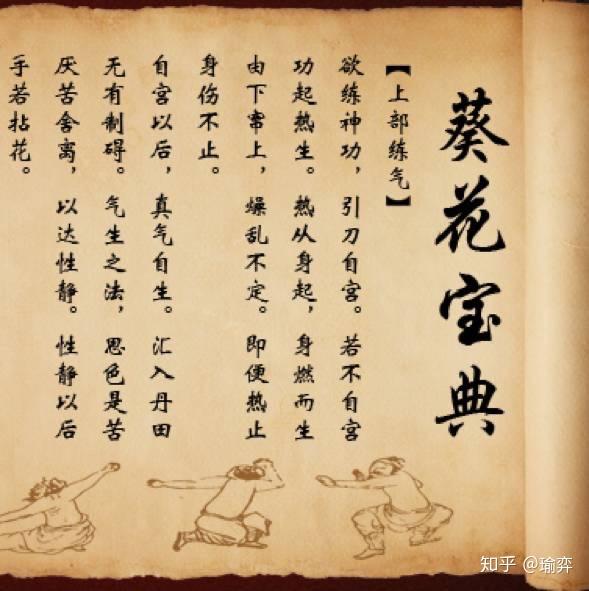 葵花宝典
【上部练气】
欲练神功，引刀自宫。若不自宫
功起热生。热从身起，身燃而生
由下窜上，燥乱不定。即便热止
身伤不止。
自宫以后，真气自生。汇入丹田
无有制碍。气生之法，思色是苦
厌苦舍离，以达性静。性静以后
手若拈花。
知乎 @瑜弈